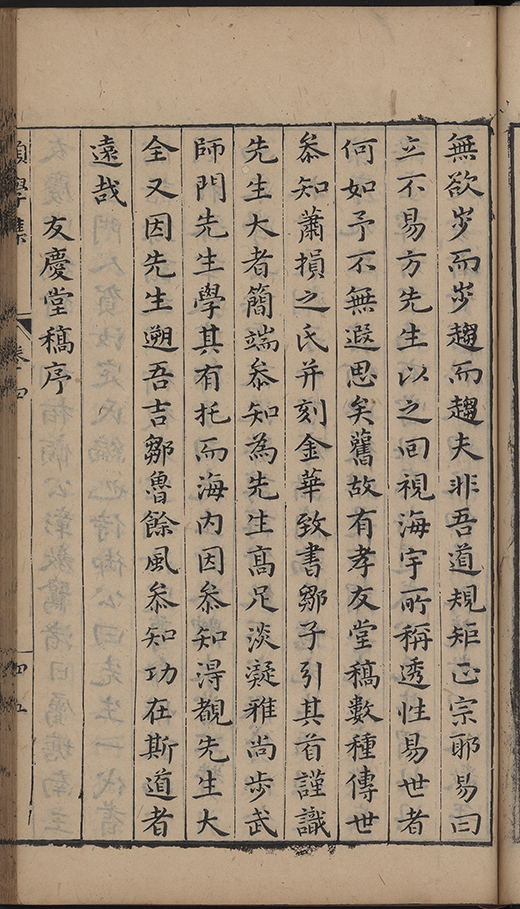 無欲步而步趨而趨夫非吾道規矩正宗耶易曰
立不易方先生以之回視海宇所稱透性易世者
何如予不無遐思矣舊故有孝友堂稿數種傳世
叅知蕭損之氏并刻金華致書鄒子引其首謹識
先生大者簡端叅知為先生高足淡凝雅尚步武
師門先生學其有托而海内因叅知淂覩先生大
全又因先生遡吾吉鄒魯餘風叅知功在斯道者
遠哉
友慶堂稿序
學集
卷之四
四五